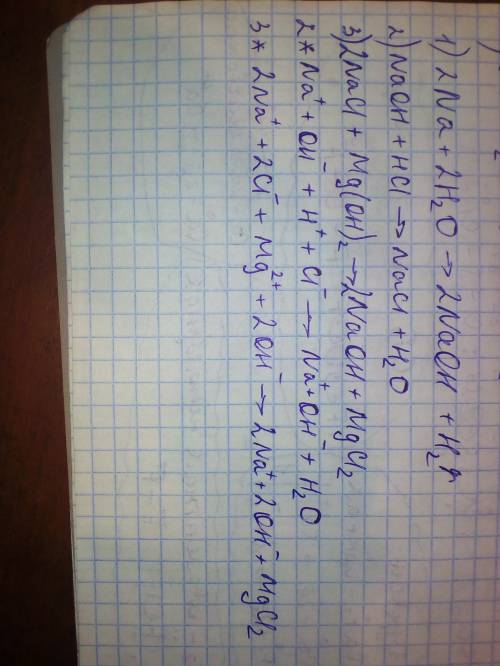 1) 2Na + 2H₂O → 2NaOH + H₂↑
2) NaOH + HCl → NaCl + H₂O
3) 2NaCl + Mg(OH)₂ → 2NaOH + MgCl₂
2* Na⁺ + OH⁻ + H⁺ + Cl⁻ → Na⁺ + OH⁻ + H₂O
3* 2Na⁺ + 2Cl⁻ + Mg²⁺ + 2OH⁻ → 2Na⁺ + 2OH⁻ + MgCl₂